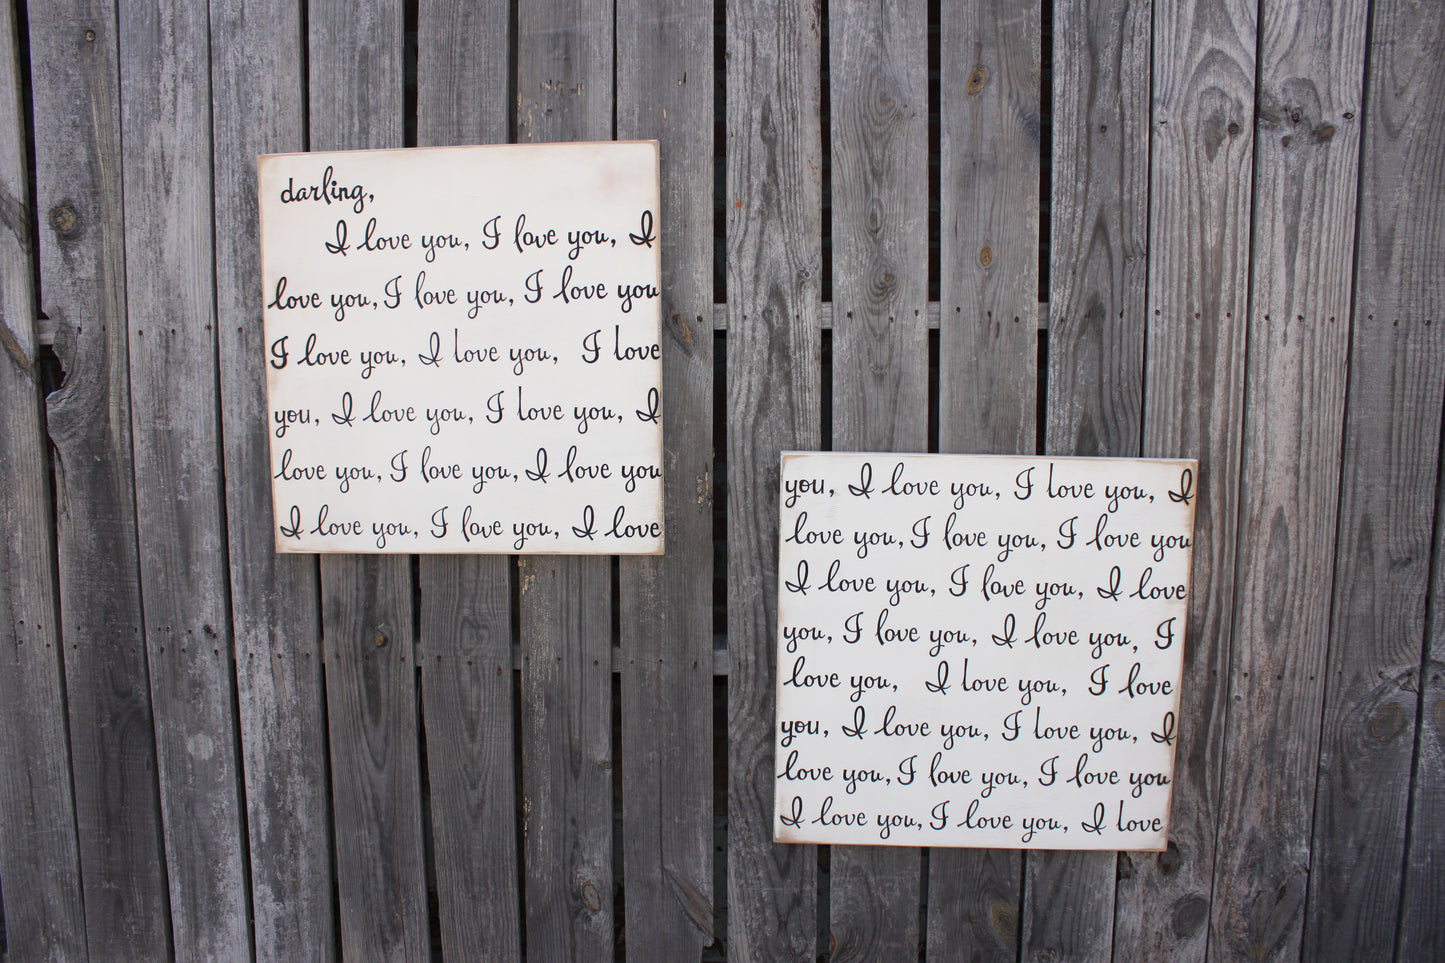 darling,
I love you, I love you, I
love you, I love you, I love you
I love you, I love you, I love
you, I love you, I love you, I
love you, I love you, I love you
I love you, I love you, I love
you, I love you, I love you, I
love you, I love you, I love you
I love you, I love you, I love
you, I love you, I love you, I
love you, I love you, I love
you, I love you, I love you, I
love you, I love you, I love you
I love you, I love you, I love